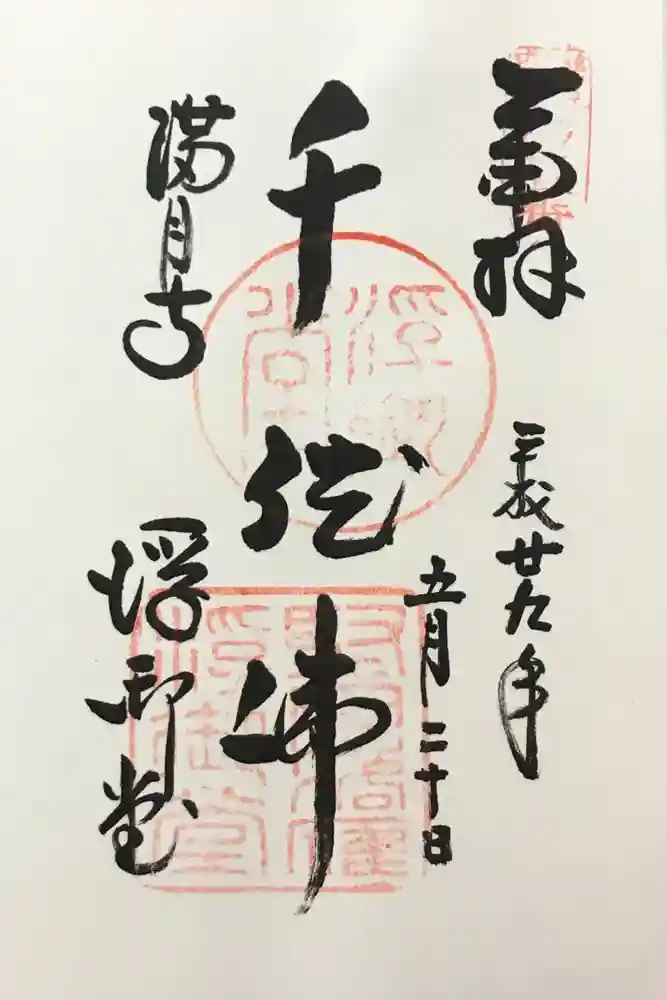 奉拝
平成廿九年
五月二十日
千体佛
満月寺
浮御堂
浮御堂